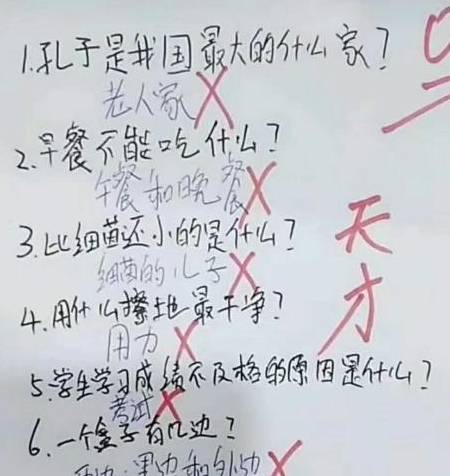 1.孔子是我国最大的什么家?
老人家
2.早餐不能吃什么?
午餐和晚餐
3.比细菌还小的是什么?
细菌的儿子
天才
4.用什么擦地最干净?
用力
5.学生学习成绩不及格的原因是什么?
考试
6.一个盒子有几边?
里边和外边